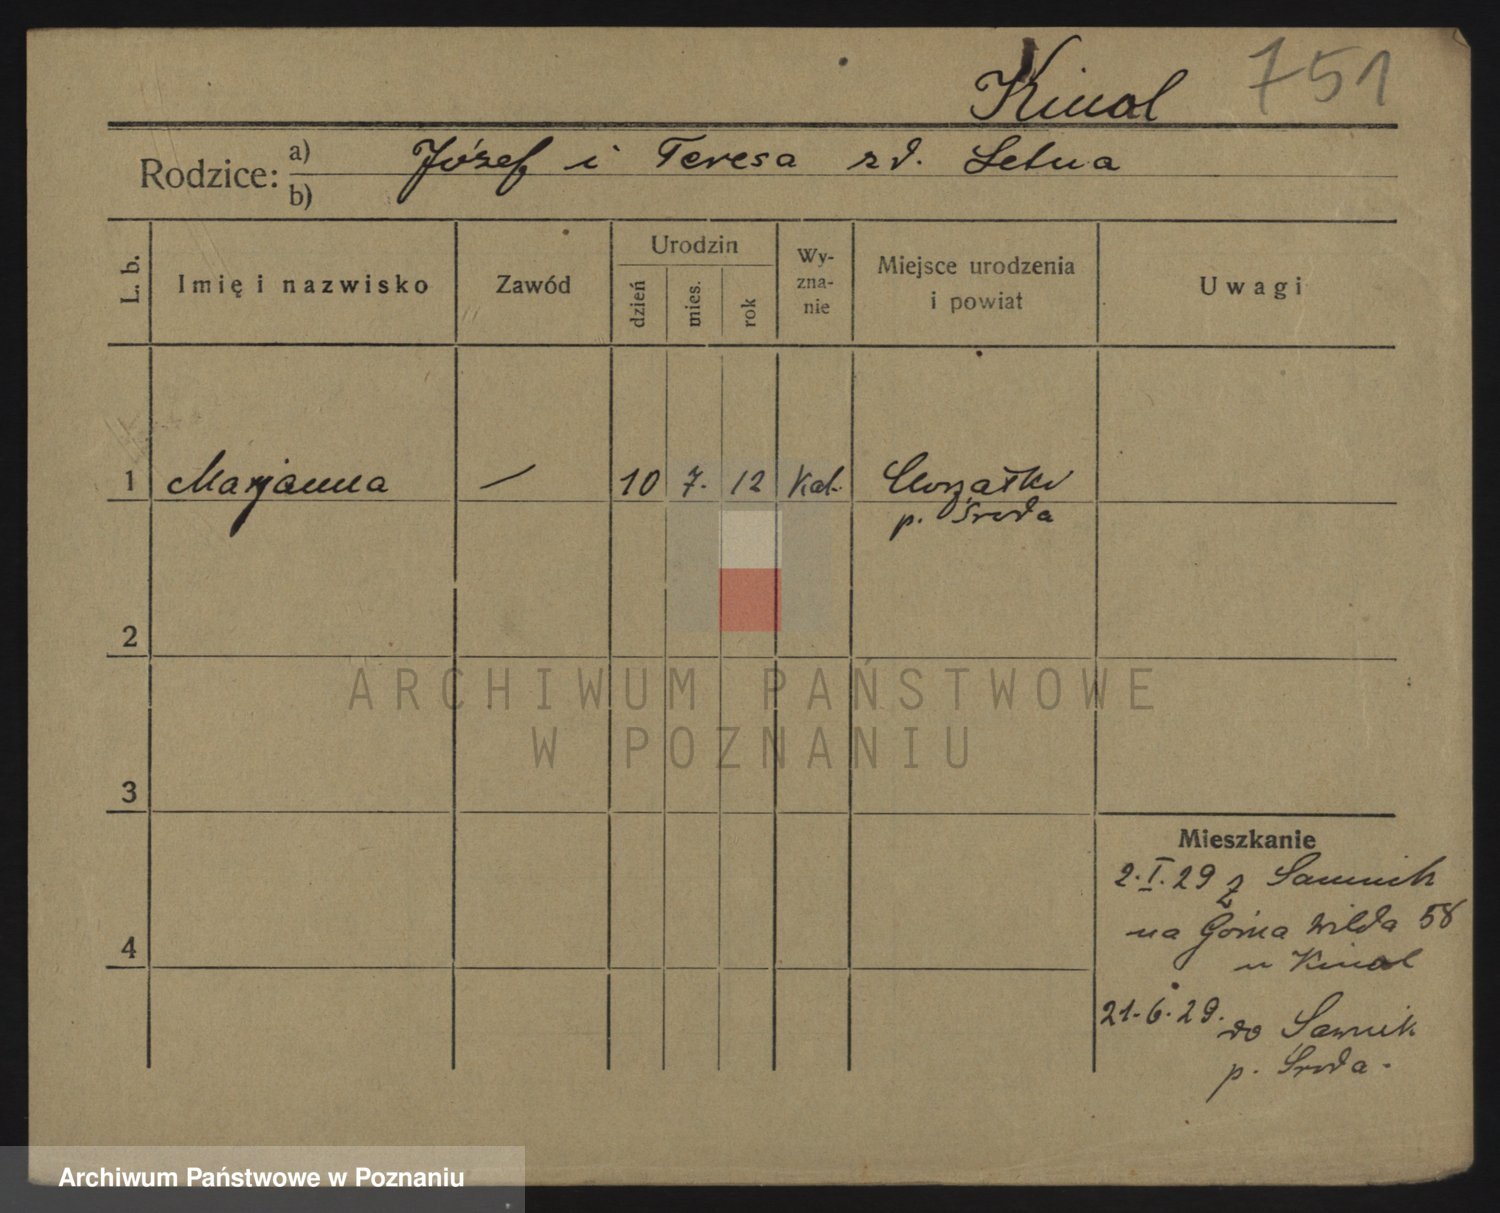 Kinal 751
Rodzice: a) Józef i Teresa zd. Letna
b)
L. b. Imię i nazwisko Zawód Urodzin dzień mies. rok Wy-zna-nie Miejsce urodzenia i powiat Uwagi
1 Marjanna — 10 7. 12 Kat.
p. Środa
2
3
4
Mieszkanie
2.I.29 z
na Górna Wilda 58
u Kinal
21.6.29. do
p. Środa.
ARCHIWUM PAŃSTWOWE
W POZNANIU
Archiwum Państwowe w Poznaniu